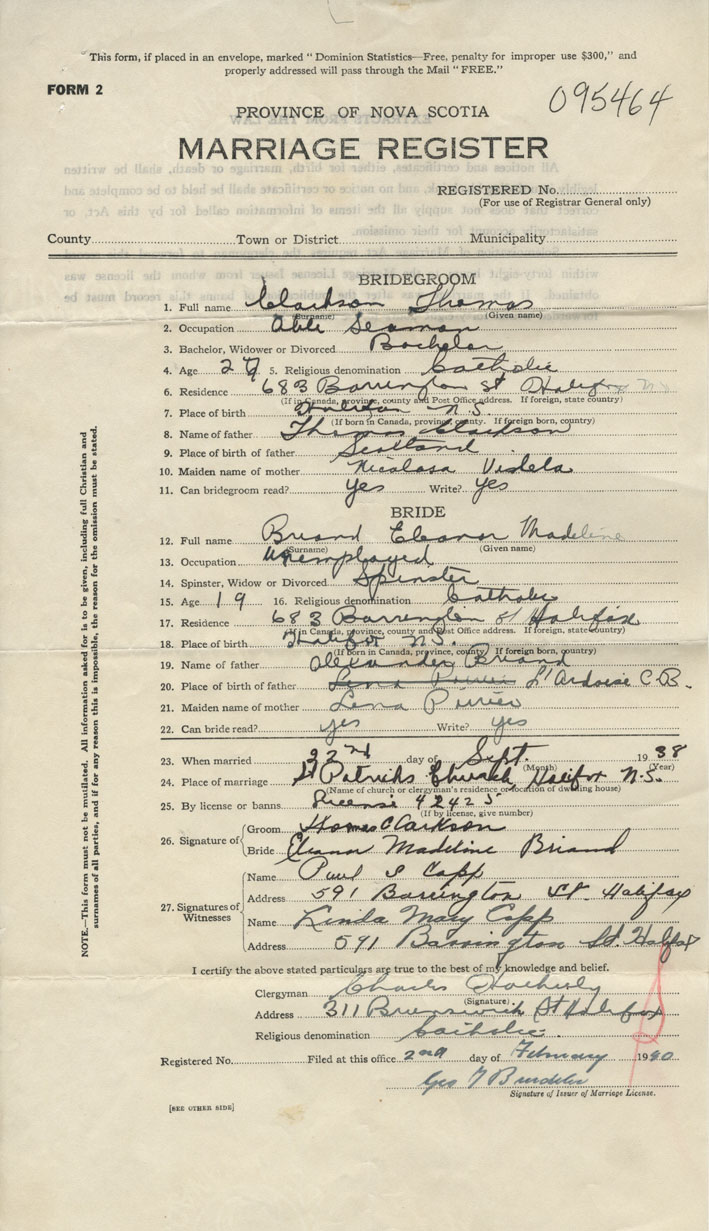 This form, if placed in an envelope, marked "Dominion Statistics—Free, penalty for improper use $300," and
properly addressed will pass through the Mail "FREE."
FORM 2
095464
PROVINCE OF NOVA SCOTIA
MARRIAGE REGISTER
REGISTERED No.
(For use of Registrar General only)
County Town or District Municipality
BRIDEGROOM
1. Full name Clarkson Thomas
(Surname) (Given name)
2. Occupation Able Seaman
3. Bachelor, Widower or Divorced Bachelor
4. Age 27 5. Religious denomination Catholic
6. Residence 683 Barrington St Halifax N.S.
(If in Canada, province, county and Post Office address. If foreign, state country)
7. Place of birth Halifax N.S.
(If born in Canada, province, county. If foreign born, country)
8. Name of father Thomas Clarkson
9. Place of birth of father Scotland
10. Maiden name of mother Nicolasa Videla
11. Can bridegroom read? Yes Write? Yes
BRIDE
12. Full name Briand Eleanor Madeline
(Surname) (Given name)
13. Occupation Unemployed
14. Spinster, Widow or Divorced Spinster
15. Age 19 16. Religious denomination Catholic
17. Residence 683 Barrington St Halifax
(If in Canada, province, county and Post Office address. If foreign, state country)
18. Place of birth Halifax N.S.
(If born in Canada, province, county. If foreign born, country)
19. Name of father Alexander Briand
20. Place of birth of father Lena Poirier L'Ardoise C.B.
21. Maiden name of mother Lena Poirier
22. Can bride read? yes Write? yes
23. When married 22nd day of Sept. 1938
(Month) (Year)
24. Place of marriage St Patricks Church Halifax N.S.
(Name of church or clergyman's residence or location of dwelling house)
25. By license or banns License 42425
(If by license, give number)
26. Signature of Groom Thomas Clarkson
Bride Eleanor Madeline Briand
27. Signatures of Witnesses Name Paul S Capp
Address 591 Barrington St. Halifax
Name Linda Mary Capp
Address 591 Barrington St. Halifax
I certify the above stated particulars are true to the best of my knowledge and belief.
Clergyman Charles
(Signature)
Address 311 Brunswick St Halifax
Religious denomination Catholic
Registered No. Filed at this office 2nd day of February 1940
Geo
Signature of Issuer of Marriage License.
[SEE OTHER SIDE]
NOTE.—This form must not be mutilated. All information asked for is to be given, including full Christian and
surnames of all parties, and if for any reason this is impossible, the reason for the omission must be stated.